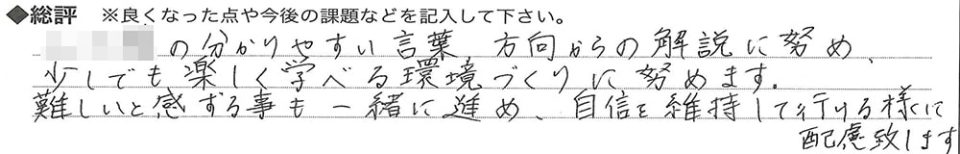 ◆総評 ※良くなった点や今後の課題などを記入して下さい。
の分かりやすい言葉、方向からの解説に努め、
少しでも楽しく学べる環境づくりに努めます.
難しいと感ずる事も一緒に進め、自信を維持して行ける様に
配慮致します